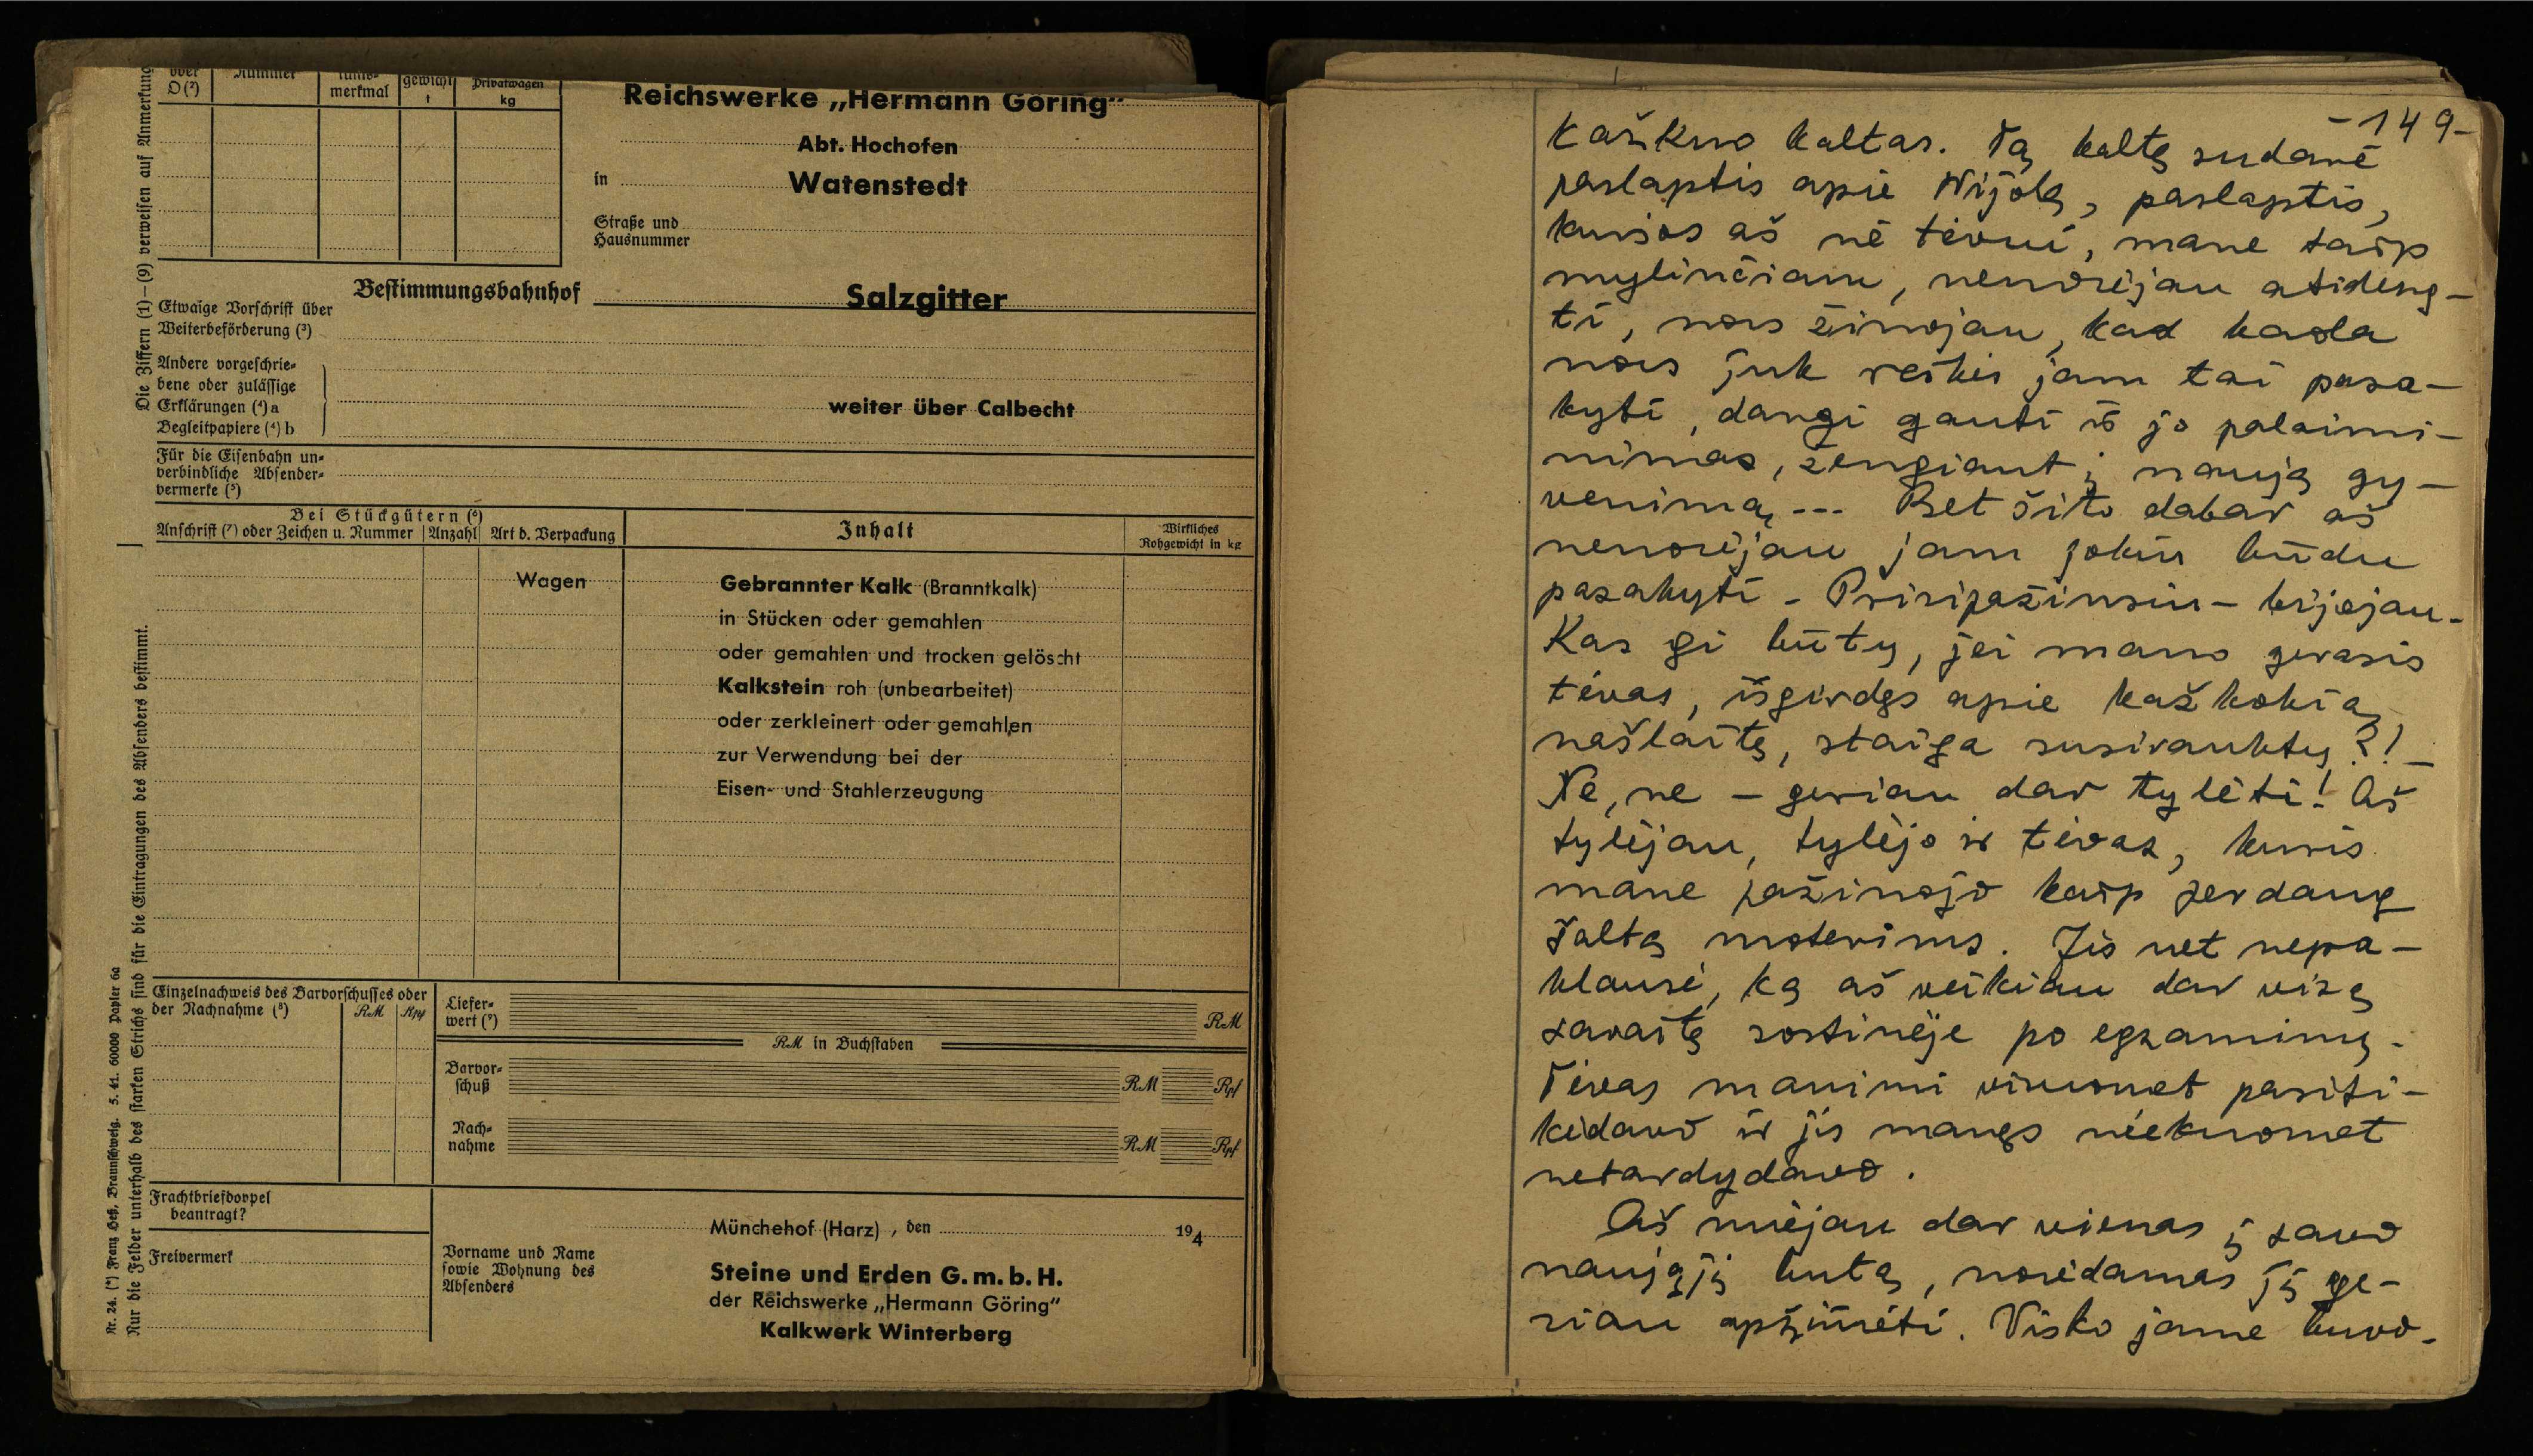 oder
D (²)
Nummer
merkmal
gewicht
t
Privatwagen
kg
Die Ziffern (1)–(9) verweisen auf Anmerkung
Reichswerke „Hermann Göring“
Abt. Hochofen
in Watenstedt
Straße und
Hausnummer
Bestimmungsbahnhof Salzgitter
Etwaige Vorschrift über
Weiterbeförderung (³)
Andere vorgeschrie-
bene oder zulässige
Erklärungen (⁴) a
Begleitpapiere (⁴) b
weiter über Calbecht
Für die Eisenbahn un-
verbindliche Absender-
vermerke (⁵)
Bei Stückgütern (⁶)
Anschrift (⁷) oder Zeichen u. Nummer Anzahl Art d. Verpackung
Inhalt
Wirkliches
Rohgewicht in kg
Wagen Gebrannter Kalk (Branntkalk)
in Stücken oder gemahlen
oder gemahlen und trocken gelöscht
Kalkstein roh (unbearbeitet)
oder zerkleinert oder gemahlen
zur Verwendung bei der
Eisen- und Stahlerzeugung
Einzelnachweis des Barvorschusses oder
der Nachnahme (⁸) RM Rpf
Liefer-
wert (⁹) RM
RM in Buchstaben
Barvor-
schuß RM Rpf
Nach-
nahme RM Rpf
Frachtbriefdoppel
beantragt?
Freivermerk
Münchehof (Harz), den 194
Vorname und Name
sowie Wohnung des
Absenders
Steine und Erden G.m.b.H.
der Reichswerke „Hermann Göring“
Kalkwerk Winterberg
Nr. 24. (*) Franz Heß, Braunschweig. 5. 41. 60000 Papier 6a
Nur die Felder unterhalb des starken Strichs sind für die Eintragungen des Absenders bestimmt.
-149-
kažkuo kaltas. Tą kaltę sudarė
paslaptis apie Nijolę, paslaptis,
kurios aš nė tėvui, mane taip
mylinčiam, nenorėjau atideng-
ti, nors žinojau, kad kada
nors juk reikės jam tai pasa-
kyti, dargi gauti iš jo palaimi-
nimas, žengiant į naują gy-
venimą... Bet šito dabar aš
nenorėjau jam jokiu būdu
pasakyti - Prisipažinsiu - bijojau.
Kas gi būtų, jei mano gerasis
tėvas, išgirdęs apie kažkokią
našlaitę, staiga susiraukty?! -
Ne, ne - geriau dar tylėti! Aš
tylėjau, tylėjo ir tėvas, kuris
mane pažinojo kaip perdaug
šaltą moterims. Jis net nepa-
klausė, ką aš veikiau dar visą
savaitę sostinėje po egzaminų.
Tėvas manimi visuomet pasiti-
kėdavo ir jis manęs niekuomet
netardydavo.
Aš nuėjau dar vienas į savo
naująjį butą, norėdamas jį ge-
riau apžiūrėti. Visko jame buvo-